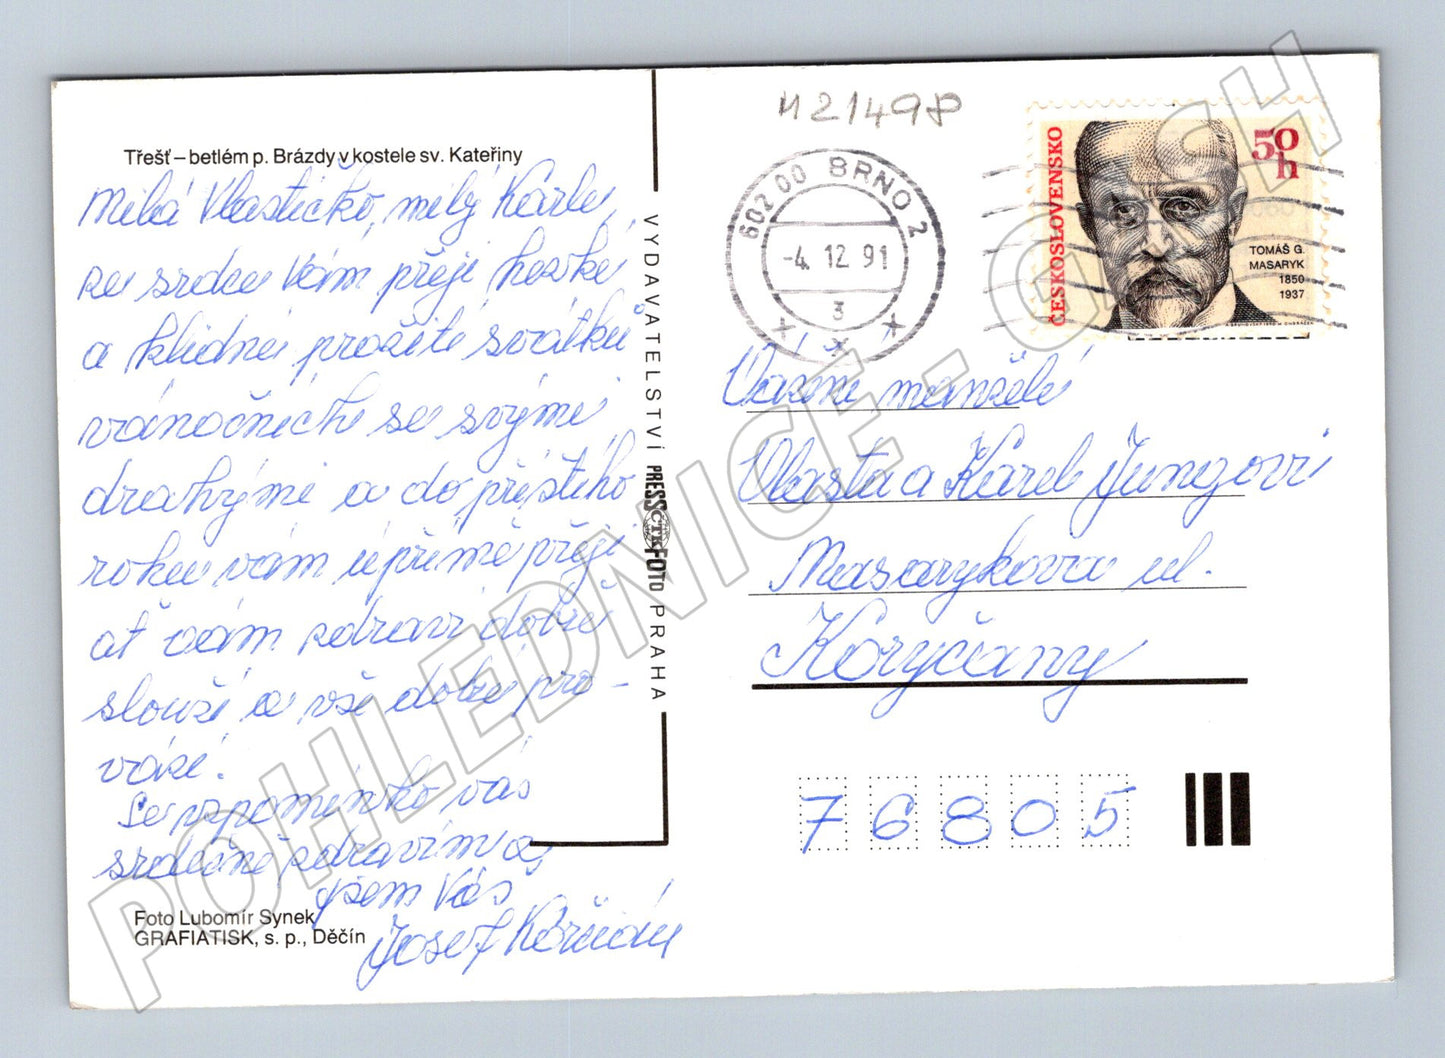 Třešť – betlém p. Brázdy v kostele sv. Kateřiny
Milá Vlastičko, milý Karle,
ze srdce Vám přeji hezké
a klidné prožití svátků
vánočních se svými
drahými a do příštího
roku vám upřímě přeji
ať vám zdraví dobře
slouží a vše dobře pro-
vází.
Se vzpomínkou vás
srdečně zdravím a
jsem Váš
Josef
Foto Lubomír Synek
GRAFIATISK, s. p., Děčín
VYDAVATELSTVÍ PRESSFOTO PRAHA
ČTK
421498
602 00 BRNO 2
-4. 12. 91
3
ČESKOSLOVENSKO
50 h
TOMÁŠ G.
MASARYK
1850
1937
Vážení manželé
Vlasta a Karel Jungovi
Masarykova ul.
Koryčany
76805
POHLEDNICE - G-ECH